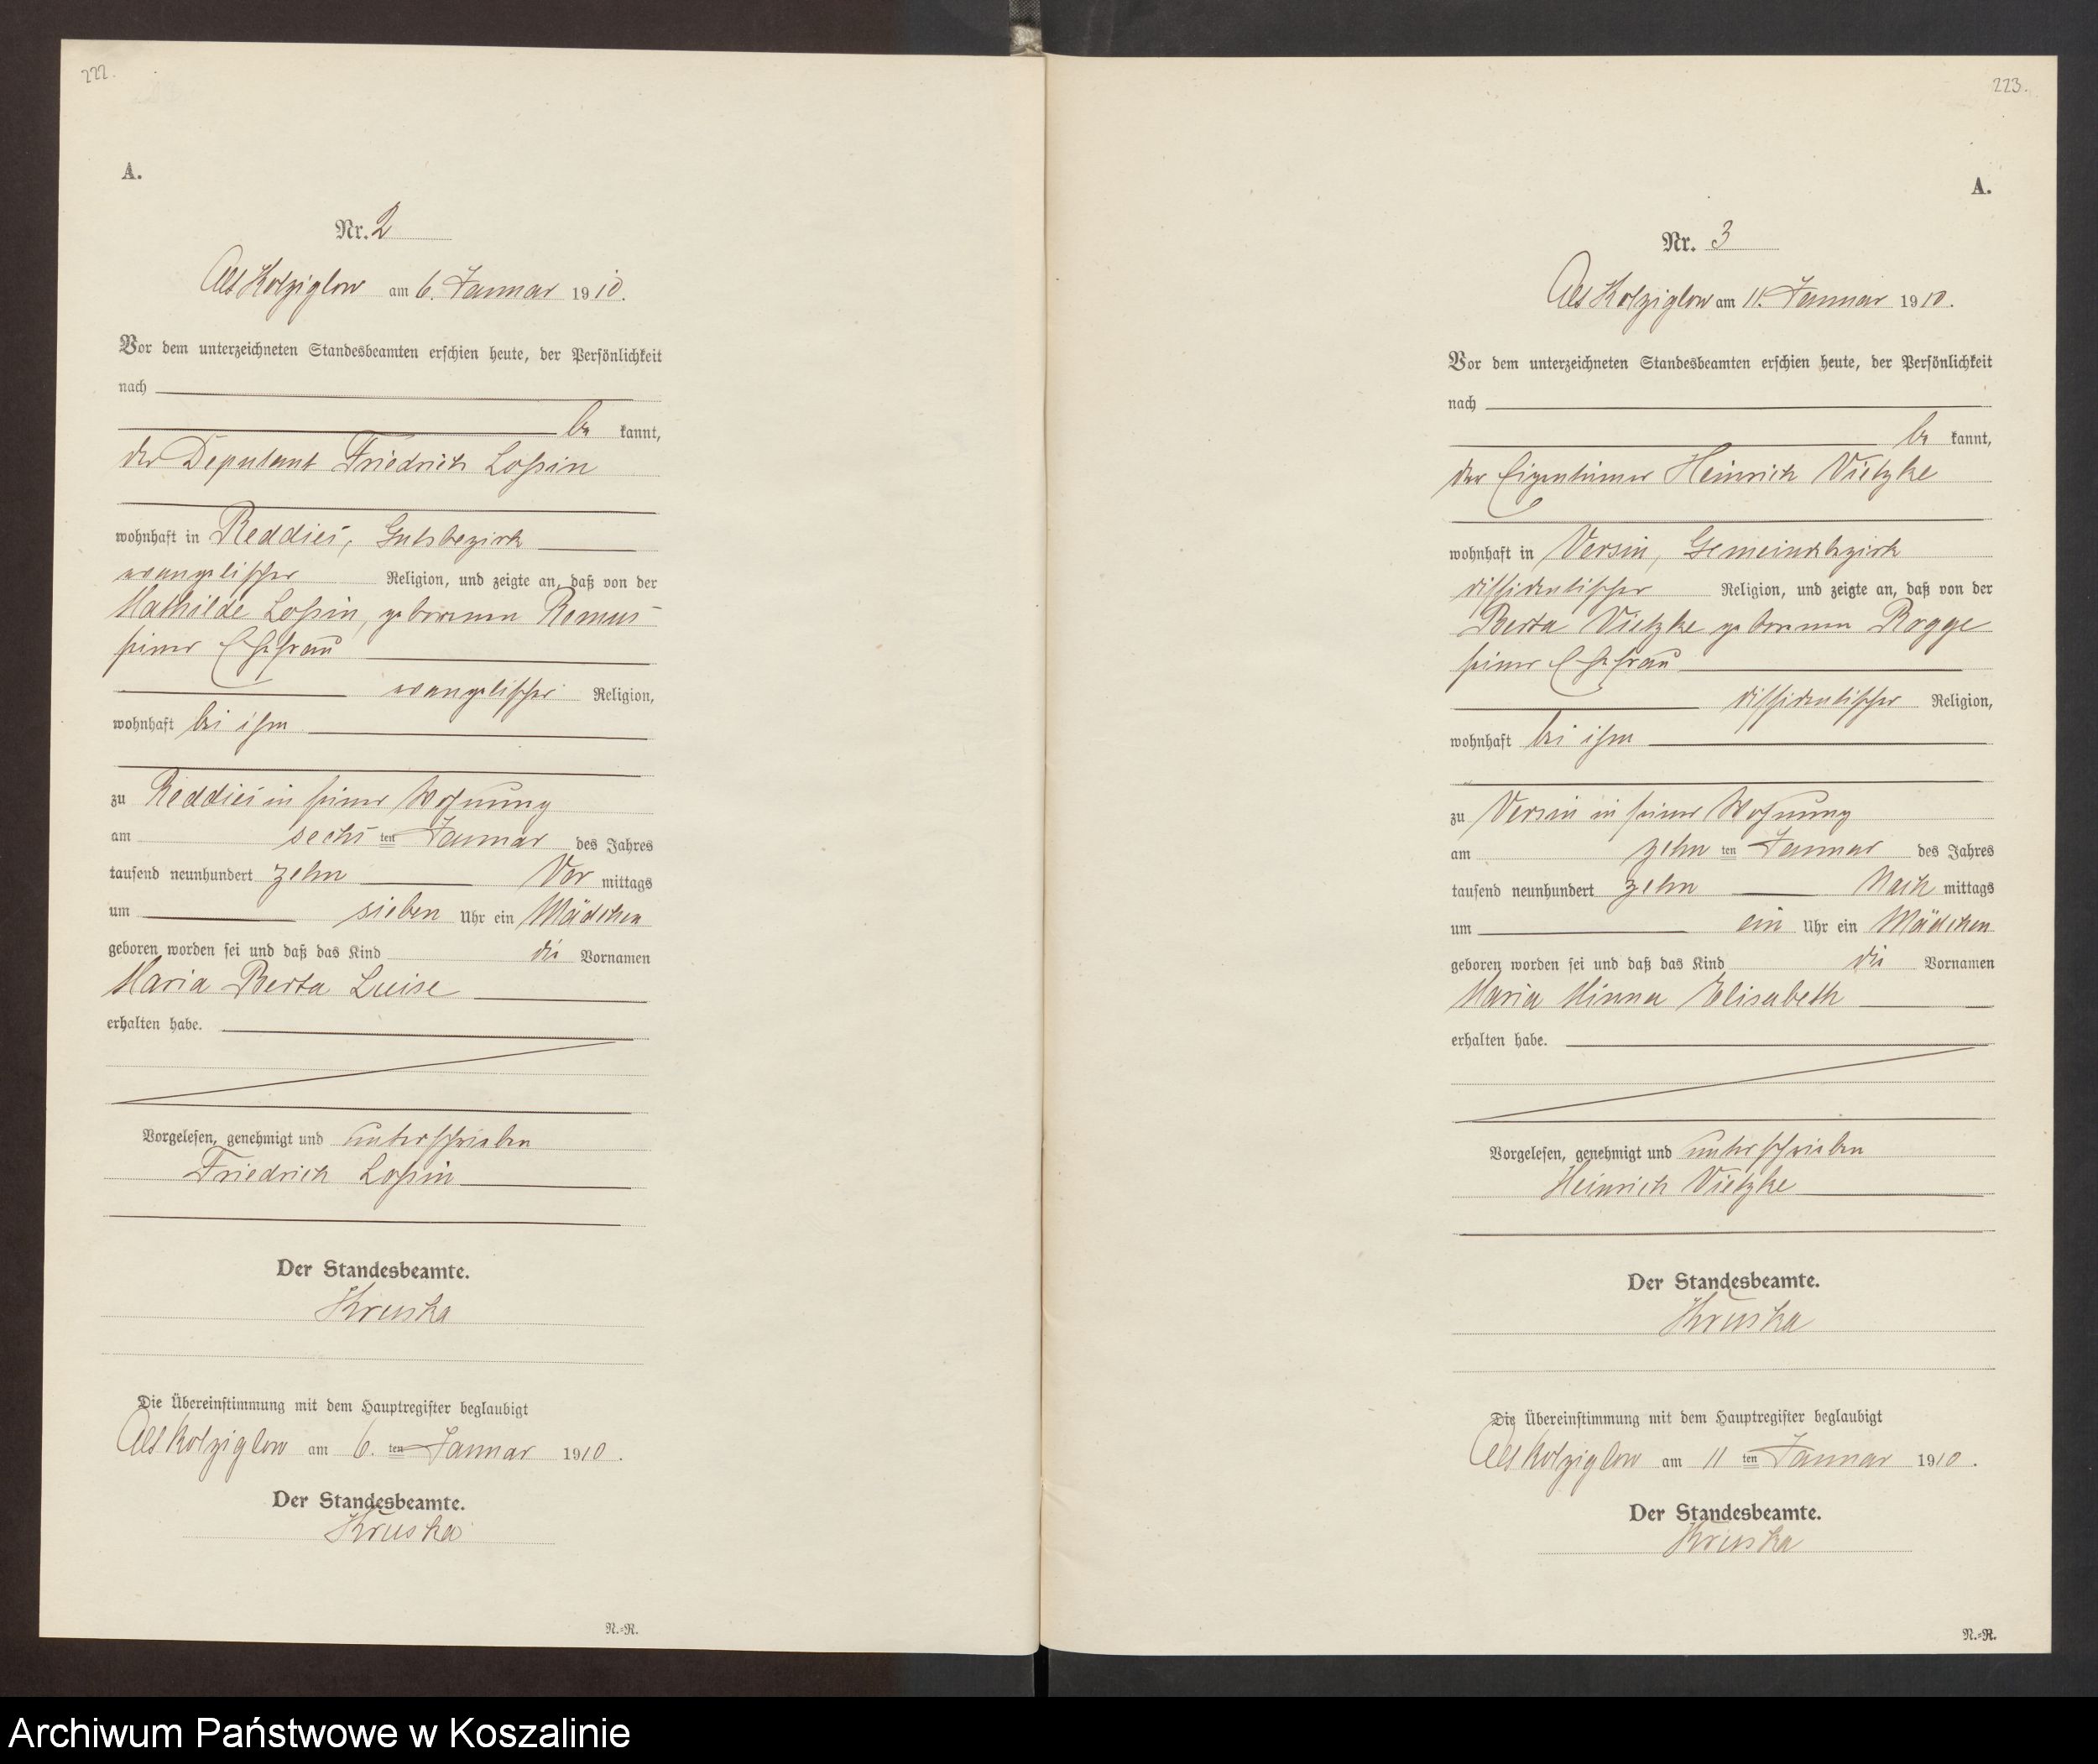 222.
A.
Nr. 2
Alt Kolziglow am 6. Januar 1910.
Vor dem unterzeichneten Standesbeamten erschien heute, der Persönlichkeit
nach
be kannt,
der Deputant Friedrich Lossin
wohnhaft in Reddies, Gutsbezirk
evangelischer Religion, und zeigte an, daß von der
Mathilde Lossin, geborenen Remus
seiner Ehefrau
evangelischer Religion,
wohnhaft bei ihm
zu Reddies in seiner Wohnung
am sechs ten Januar des Jahres
tausend neunhundert zehn Vor mittags
um sieben Uhr ein Mädchen
geboren worden sei und daß das Kind die Vornamen
Maria Berta Luise
erhalten habe.
Vorgelesen, genehmigt und unterschrieben
Friedrich Lossin
Der Standesbeamte.
Kruska
Die Übereinstimmung mit dem Hauptregister beglaubigt
Alt Kolziglow am 6. ten Januar 1910.
Der Standesbeamte.
Kruska
N.=R.
223.
A.
Nr. 3
Alt Kolziglow am 11. Januar 1910.
Vor dem unterzeichneten Standesbeamten erschien heute, der Persönlichkeit
nach
be kannt,
der Eigentümer Heinrich Vietzke
wohnhaft in Versin, Gemeindebezirk
dissidentischer Religion, und zeigte an, daß von der
Berta Vietzke geborenen Rogge
seiner Ehefrau
dissidentischer Religion,
wohnhaft bei ihm
zu Versin in seiner Wohnung
am zehn ten Januar des Jahres
tausend neunhundert zehn Nach mittags
um ein Uhr ein Mädchen
geboren worden sei und daß das Kind die Vornamen
Maria Minna Elisabeth
erhalten habe.
Vorgelesen, genehmigt und unterschrieben
Heinrich Vietzke
Der Standesbeamte.
Kruska
Die Übereinstimmung mit dem Hauptregister beglaubigt
Alt Kolziglow am 11 ten Januar 1910.
Der Standesbeamte.
Kruska
N.=R.
Archiwum Państwowe w Koszalinie